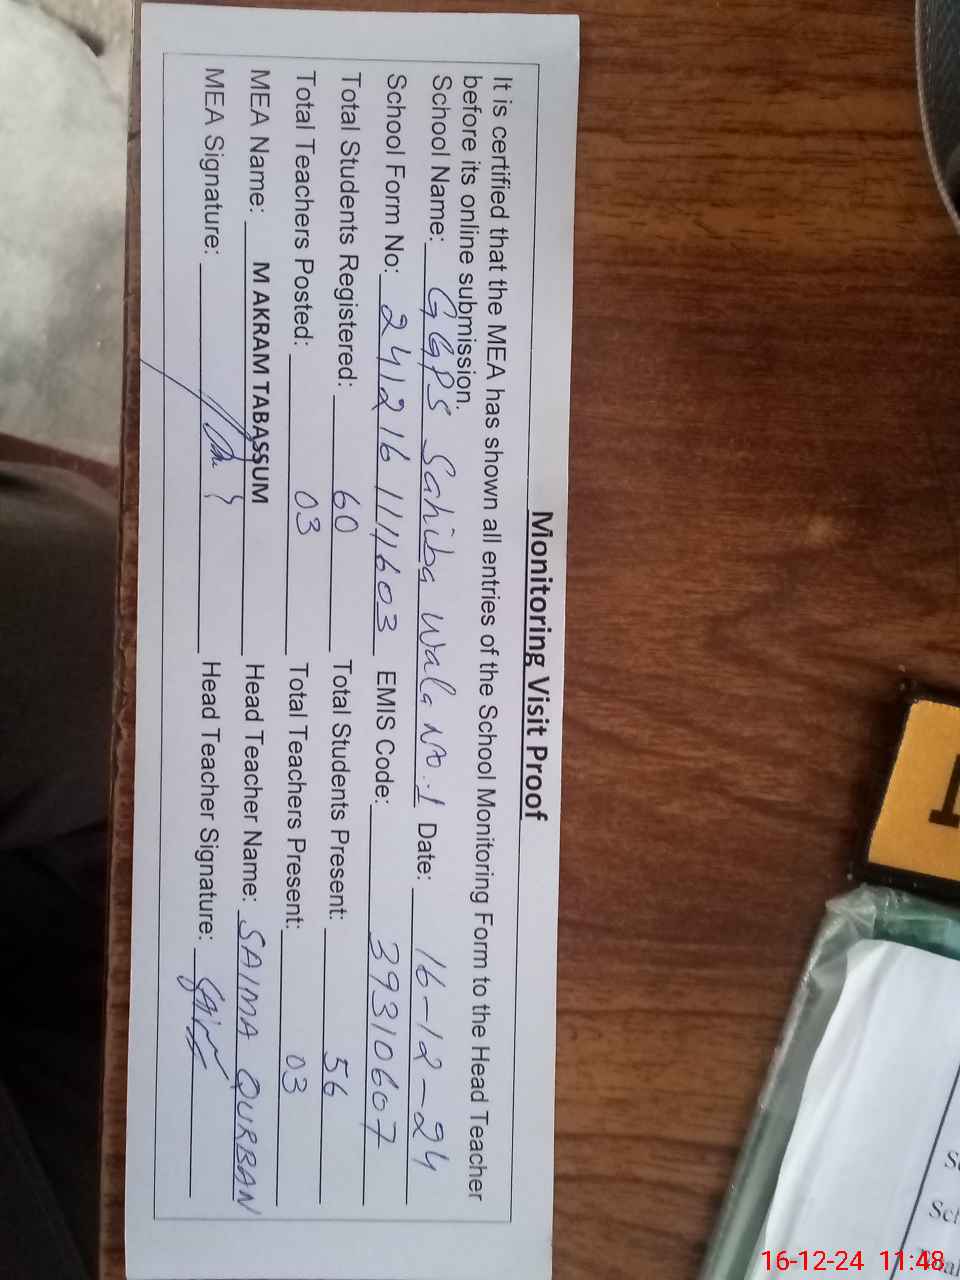 Monitoring Visit Proof
It is certified that the MEA has shown all entries of the School Monitoring Form to the Head Teacher
before its online submission.
School Name: GGPS Sahiba Wala No.1 Date: 16-12-24
School Form No: 241216111603 EMIS Code: 39310607
Total Students Registered: 60 Total Students Present: 56
Total Teachers Posted: 03 Total Teachers Present: 03
MEA Name: M AKRAM TABASSUM Head Teacher Name: SAIMA QURBAN
MEA Signature: Head Teacher Signature:
16-12-24 11:48